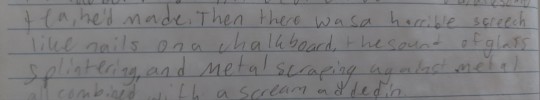 tea, he'd made. Then there was a horrible screech
like nails on a chalkboard, the sound of glass
splintering, and metal scraping against metal
all combined with a scream added in